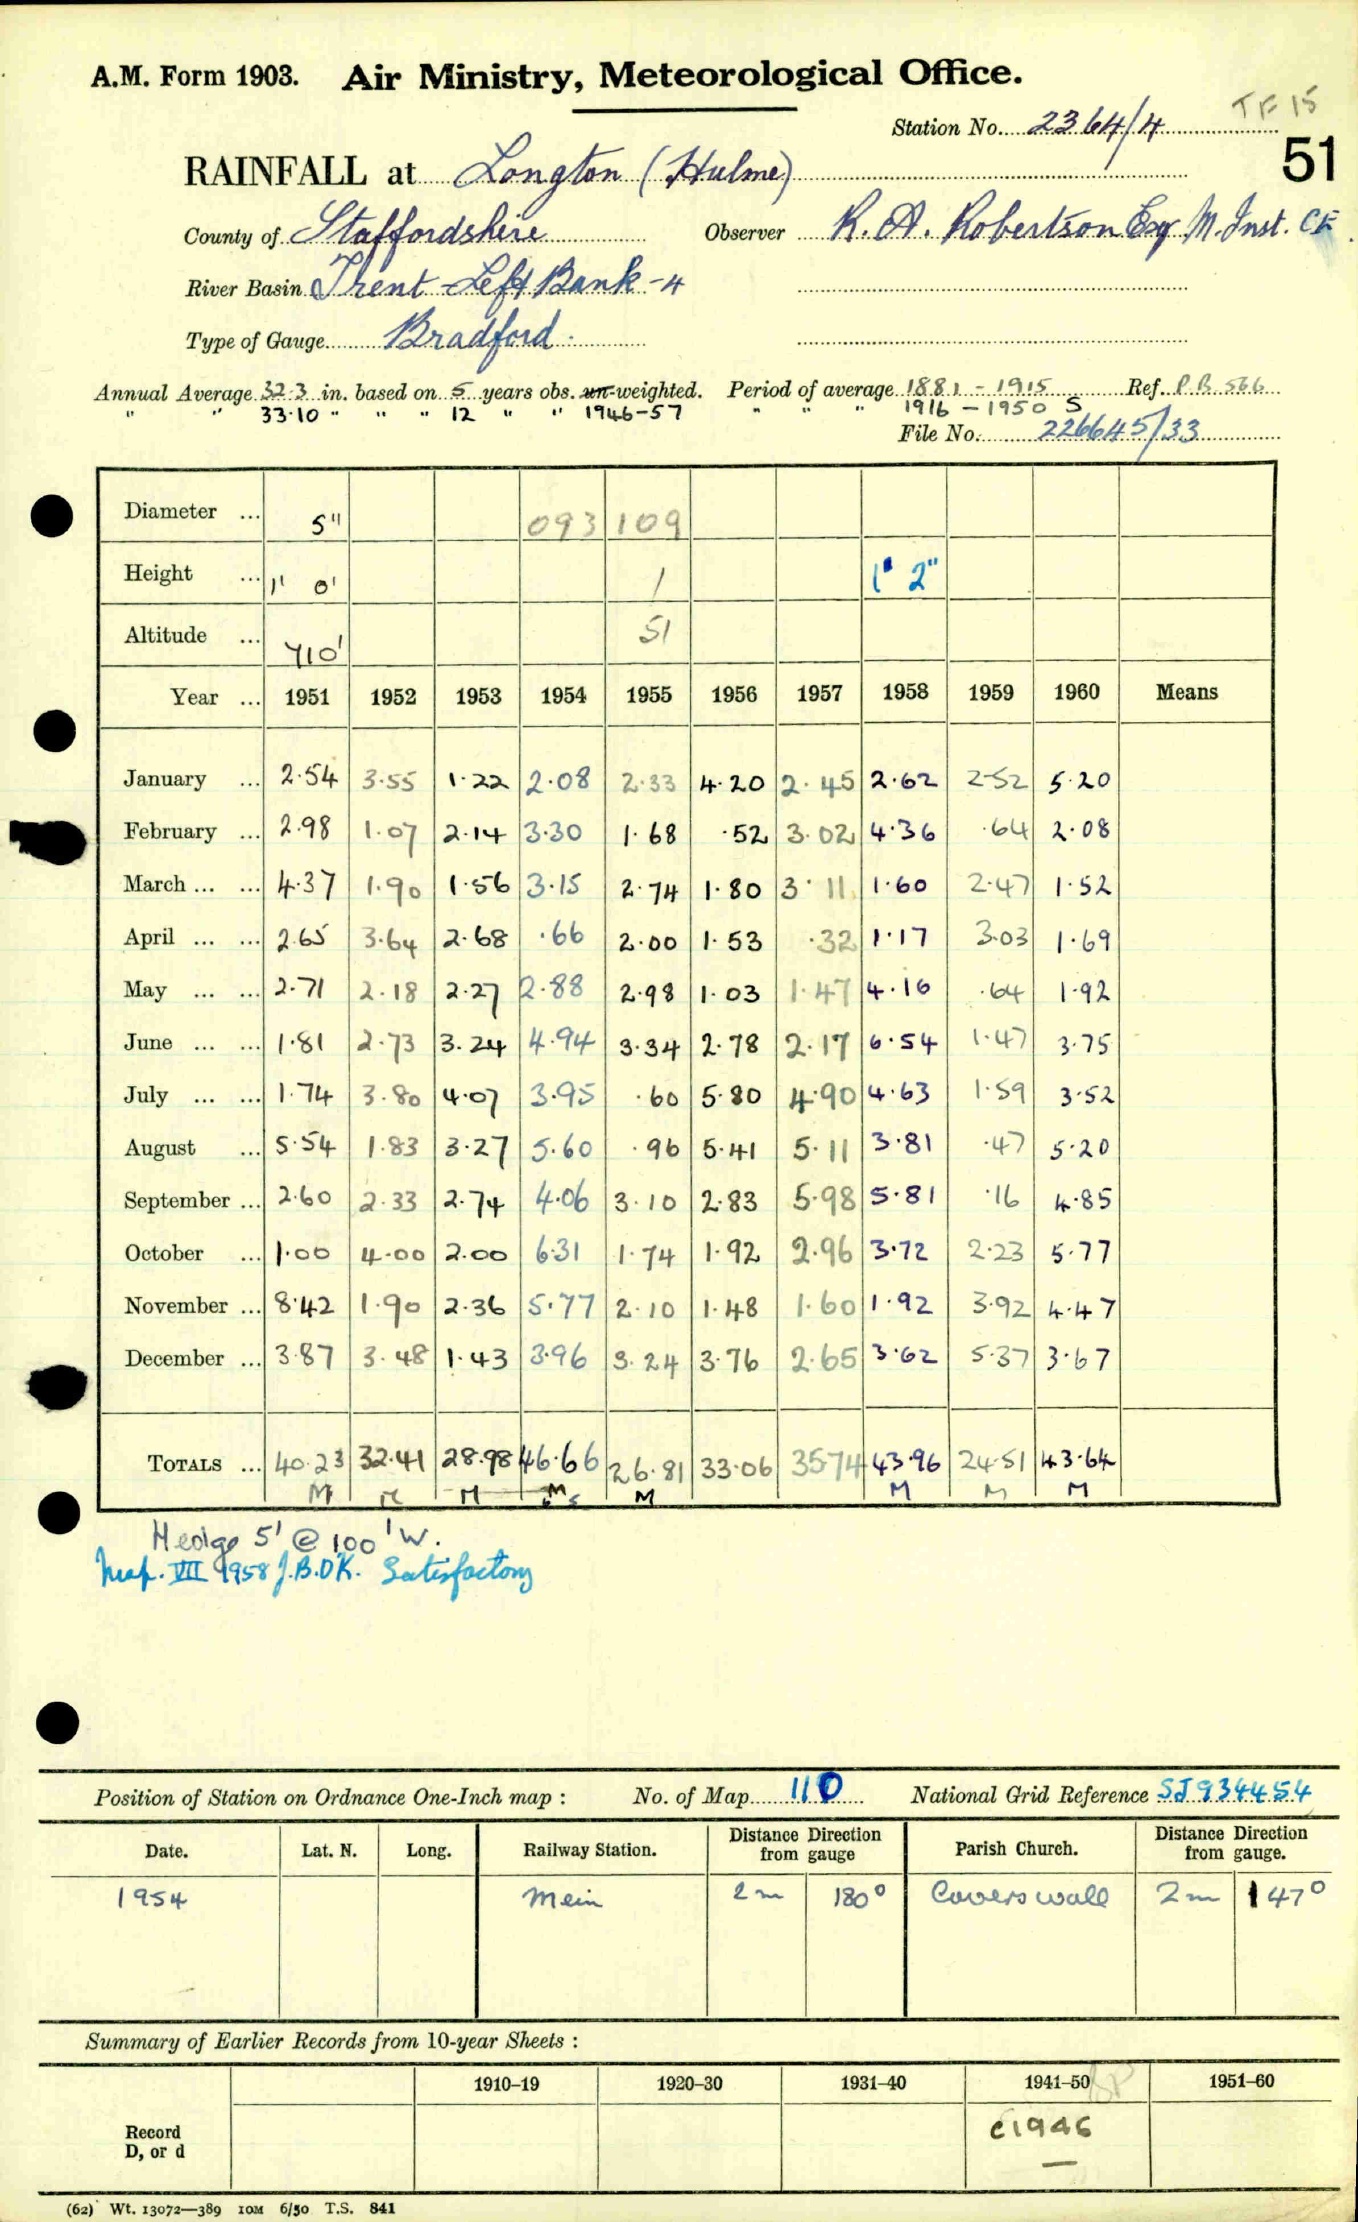 A.M. Form 1903. Air Ministry, Meteorological Office.
TF 15
Station No. 2364/4
51
RAINFALL at Longton (Hulme)
County of Staffordshire Observer R. A. Robertson Esq M. Inst. CE.
River Basin Trent - Left Bank - 4
Type of Gauge Bradford.
Annual Average 32.3 in. based on 5 years obs. un-weighted. Period of average 1881 - 1915 Ref. P.B. 566
" " 33.10 " " " 12 " " 1946-57 " " " 1916 - 1950 S
File No. 226645/33
Diameter ... 5" 093 109
Height ... 1' 0' 1 1' 2"
Altitude ... 710' 51
Year ... 1951 1952 1953 1954 1955 1956 1957 1958 1959 1960 Means
January ... 2.54 3.55 1.22 2.08 2.33 4.20 2.45 2.62 2.52 5.20
February ... 2.98 1.07 2.14 3.30 1.68 .52 3.02 4.36 .64 2.08
March ... ... 4.37 1.90 1.56 3.15 2.74 1.80 3.11 1.60 2.47 1.52
April ... ... 2.65 3.64 2.68 .66 2.00 1.53 .32 1.17 3.03 1.69
May ... ... 2.71 2.18 2.27 2.88 2.98 1.03 1.47 4.16 .64 1.92
June ... ... 1.81 2.73 3.24 4.94 3.34 2.78 2.17 6.54 1.47 3.75
July ... ... 1.74 3.80 4.07 3.95 .60 5.80 4.90 4.63 1.59 3.52
August ... 5.54 1.83 3.27 5.60 .96 5.41 5.11 3.81 .47 5.20
September ... 2.60 2.33 2.74 4.06 3.10 2.83 5.98 5.81 .16 4.85
October ... 1.00 4.00 2.00 6.31 1.74 1.92 2.96 3.72 2.23 5.77
November ... 8.42 1.90 2.36 5.77 2.10 1.48 1.60 1.92 3.92 4.47
December ... 3.87 3.48 1.43 3.96 3.24 3.76 2.65 3.62 5.37 3.67
TOTALS ... 40.23 32.41 28.98 46.66 26.81 33.06 35.74 43.96 24.51 43.64
M M M M M M M M
Hedge 5' @ 100' W.
Insp. VII 1958 J.B.DK. Satisfactory
Position of Station on Ordnance One-Inch map : No. of Map 110 National Grid Reference SJ 934454
Date. Lat. N. Long. Railway Station. Distance Direction from gauge Parish Church. Distance Direction from gauge.
1954 Meir 2m 180° Caverswall 2m 147°
Summary of Earlier Records from 10-year Sheets :
1910–19 1920–30 1931–40 1941–50 1951–60
Record D, or d c1946
(62) Wt. 13072—389 10M 6/50 T.S. 841